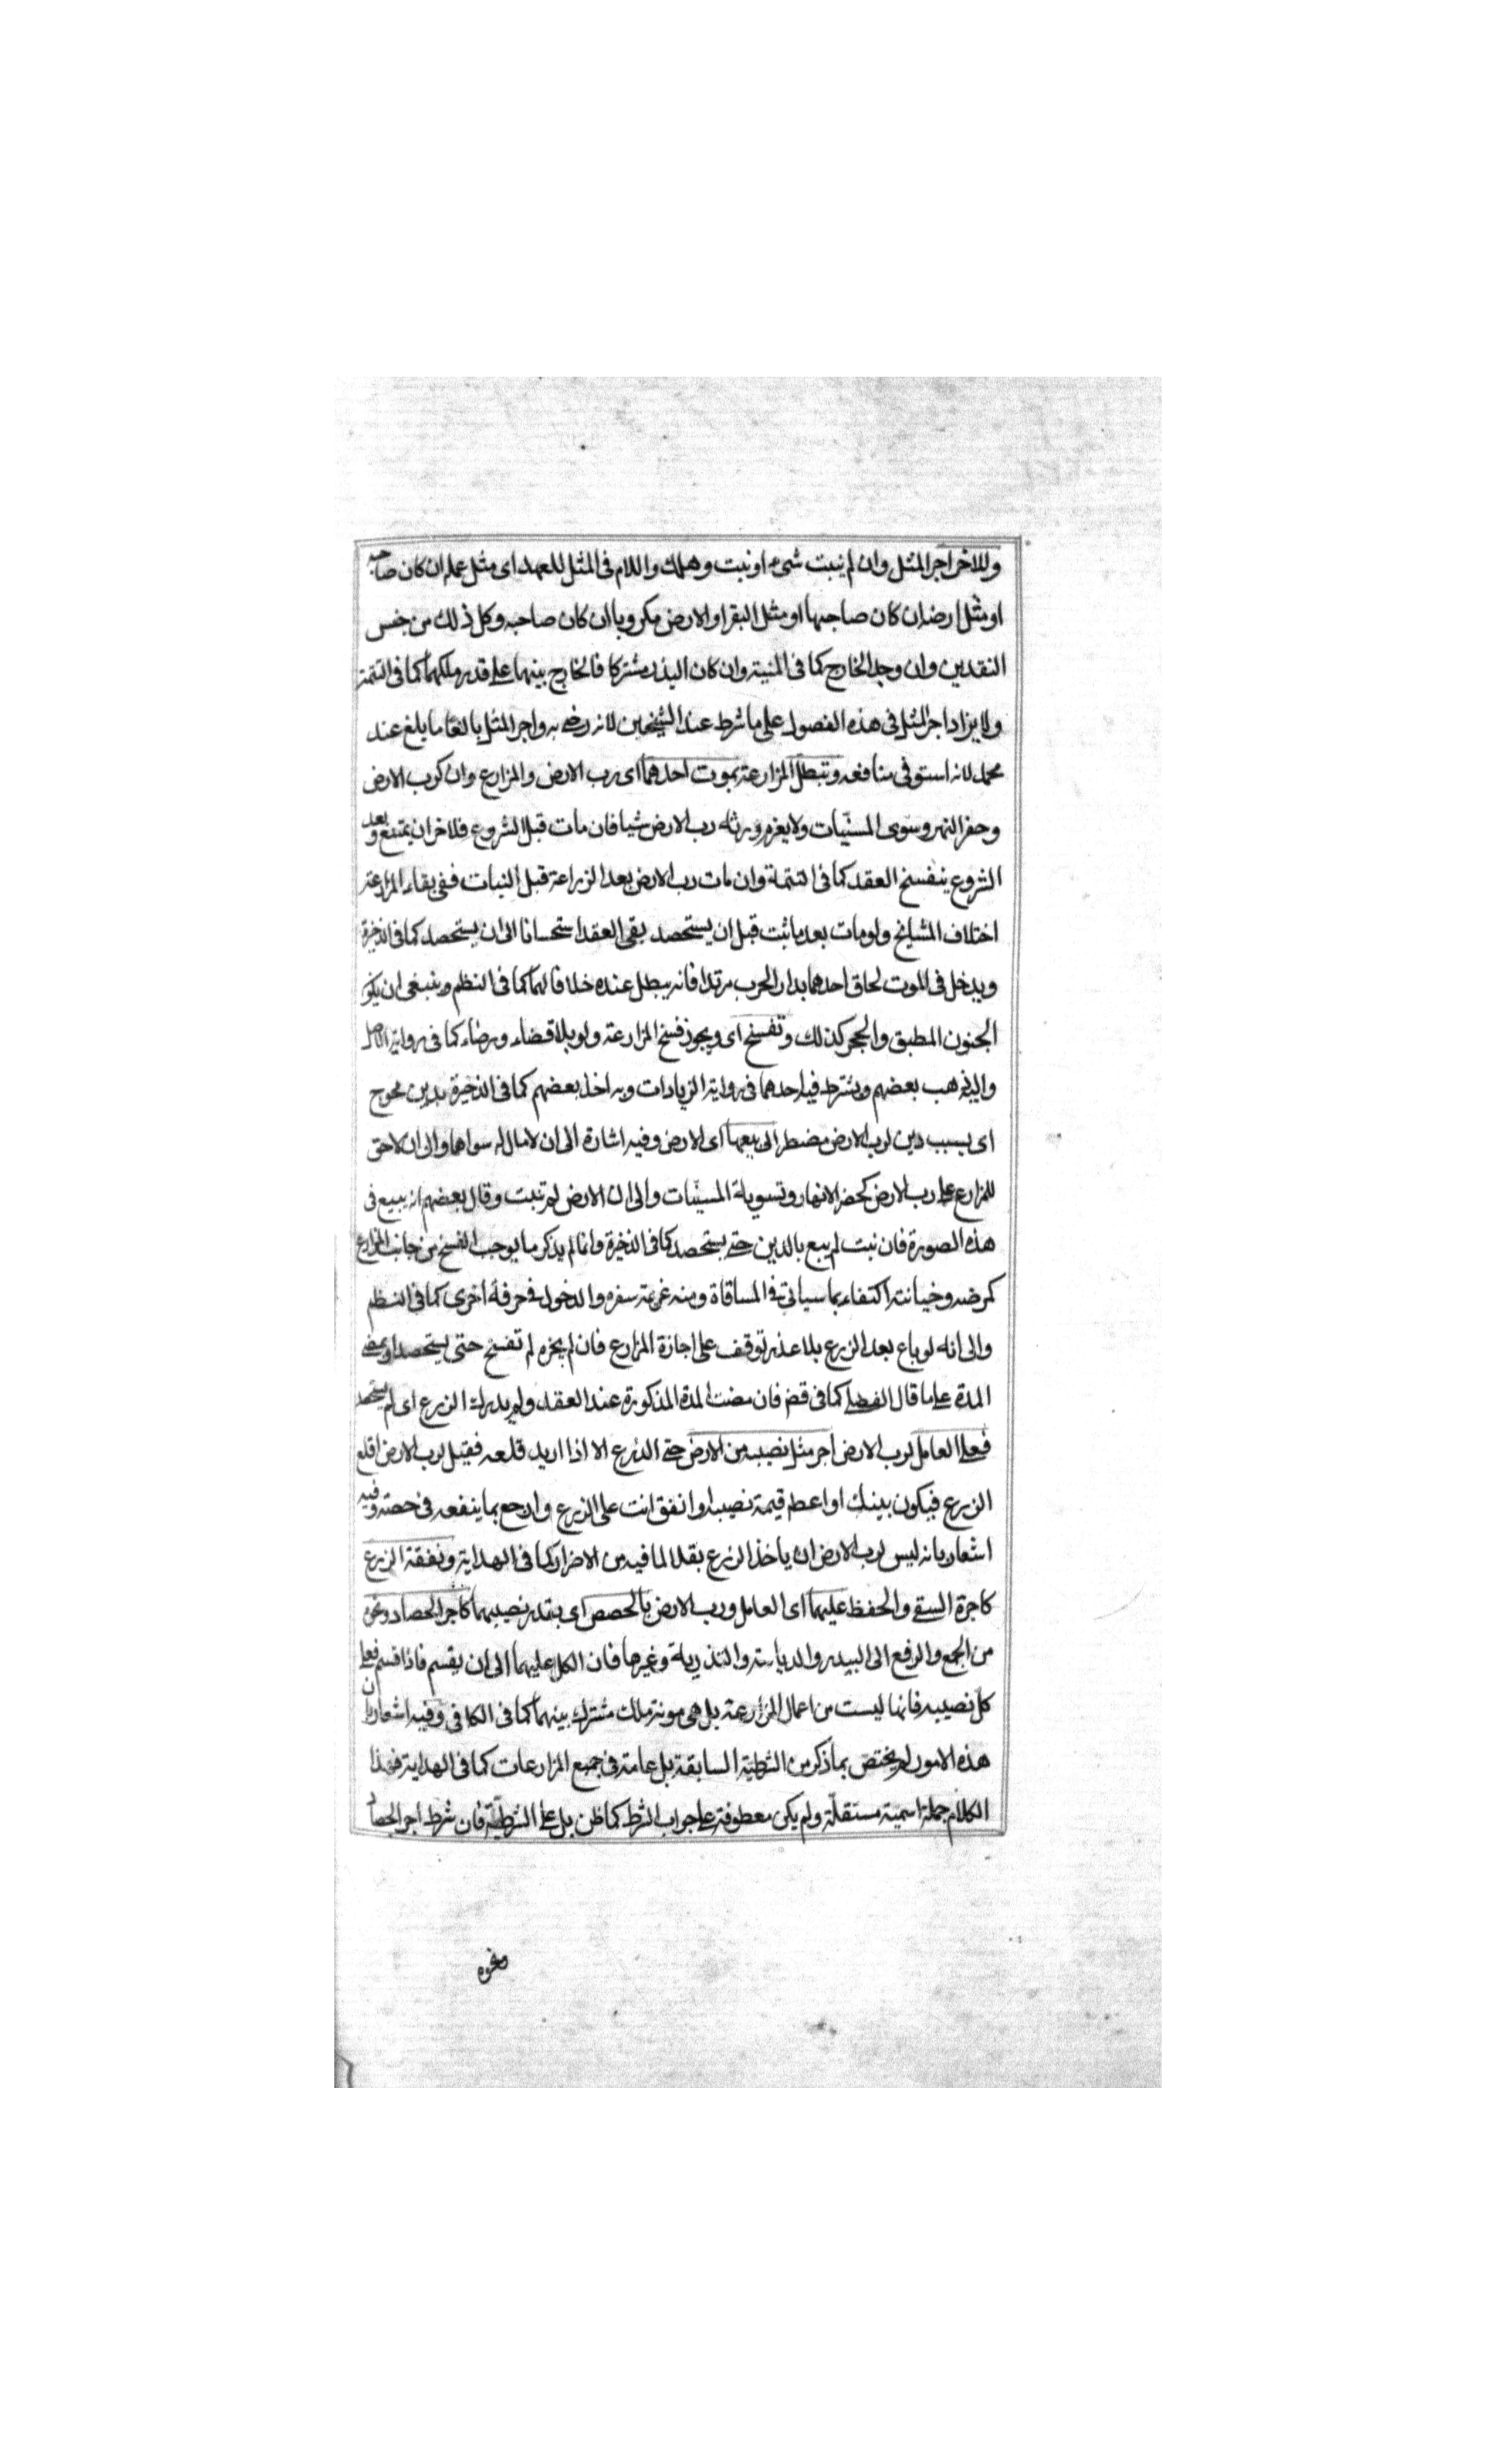 وللاخر اجر المثل وان لم ينبت شىء او نبت وهلك واللام فى المثل للعهد اى مثل عمله ان كان صاحبه
او مثل ارضه ان كان صاحبها او مثل البقر او الارض مكروبا ان كان صاحبه وكل ذلك من جنس
النقدين وان وجد الخارج كما فى المنية وان كان البذر مشتركا فالخارج بينهما على قدر ملكهما كما فى التتمة
ولا يزاد اجر المثل فى هذه الفصول على ما شرط عند الشيخين لانه رضى به واجر المثل بالغا ما بلغ عند
محمد لانه استوفى منافعه وتبطل المزارعة بموت احدهما اى رب الارض والمزارع وان كرب الارض
وحفر النهر وسوى المسنّيات ولا يغرم ورثة رب الارض شيا فان مات قبل الشروع فلاخر ان يمتنع وبعد
الشروع ينفسخ العقد كما فى التتمة وان مات رب الارض بعد الزراعة قبل النبات ففى بقاء المزارعة
اختلاف المشايخ ولو مات بعد ما نبت قبل ان يستحصد بقى العقد استحسانا الى ان يستحصد كما فى الذخيرة
ويدخل فى الموت لحاق احدهما بدار الحرب مرتدا فانه يبطل عنده خلافا لهما كما فى النظم وينبغى ان يكو
الجنون المطبق والحجر كذلك وتفسخ اى ويجوز فسخ المزارعة ولو بلا قضاء ورضاء كما فى رواية الاصل
واليه ذهب بعضهم ويشترط فيه احدهما فى رواية الزيادات وبه اخذ بعضهم كما فى الذخيرة بدين محوج
اى بسبب دين لرب الارض مضطر الى بيعها اى الارض وفيه اشارة الى ان لا مال له سواها والى ان لا حق
للمزارع على رب الارض كحفر الانهار وتسوية المسنّيات والى ان الارض لم تنبت وقال بعضهم انه يبيع فى
هذه الصورة فان نبت لم يبع بالدين حتى يستحصد كما فى الذخيرة وانما لم يذكر ما يوجب الفسخ من جانب المزارع
كمرضه وخيانته اكتفاء بما سياتى فى المساقاة ومنه عزيمة سفره والدخول فى حرفة اخرى كما فى النظم
والى انه لو باع بعد الزرع بلا عذر توقف على اجازة المزارع فان لم يجزه لم تفسخ حتى يستحصد او يمضى
المدة على ما قال الفضلى كما فى قض فان مضت المدة المذكورة عند العقد ولم يدرك الزرع اى لم يستحصد
فعلى العامل لرب الارض اجر مثل نصيبه من الارض حتى الدرع الا اذا اريد قلعه فقيل لرب الارض اقلع
الزرع فيكون بينك او اعطه قيمة نصيبه او انفق انت على الزرع وارجع بما ينفعه فى حصته وفيه
اشعار بانه ليس لرب الارض ان ياخذ الزرع بقلا لما فيه من الاضرار كما فى الهداية ونفقة الزرع
كاجرة السقى والحفظ عليهما اى العامل ورب الارض بالحصص اى بقدر نصيبهما كاجر الحصاد ونحوه
من الجمع والرفع الى البيدر والدياسة والتذرية وغيرها فان الكل عليهما الى ان يقسم فاذا قسم فعلى
كلّ نصيبه فانها ليست من اعمال المزارعة بل هى مونة ملك مشترك بينهما كما فى الكافى وفيه اشعار بان
هذه الامور لم يختص بما ذكر من الشرطية السابقة بل عامة فى جميع المزارعات كما فى الهداية فهذا
الكلام جملة اسمية مستقلّة ولم يكن معطوفة على جواب الشرط كما ظن بل على الشرطيّة فان شرط اجر الحصاد
ونحوه